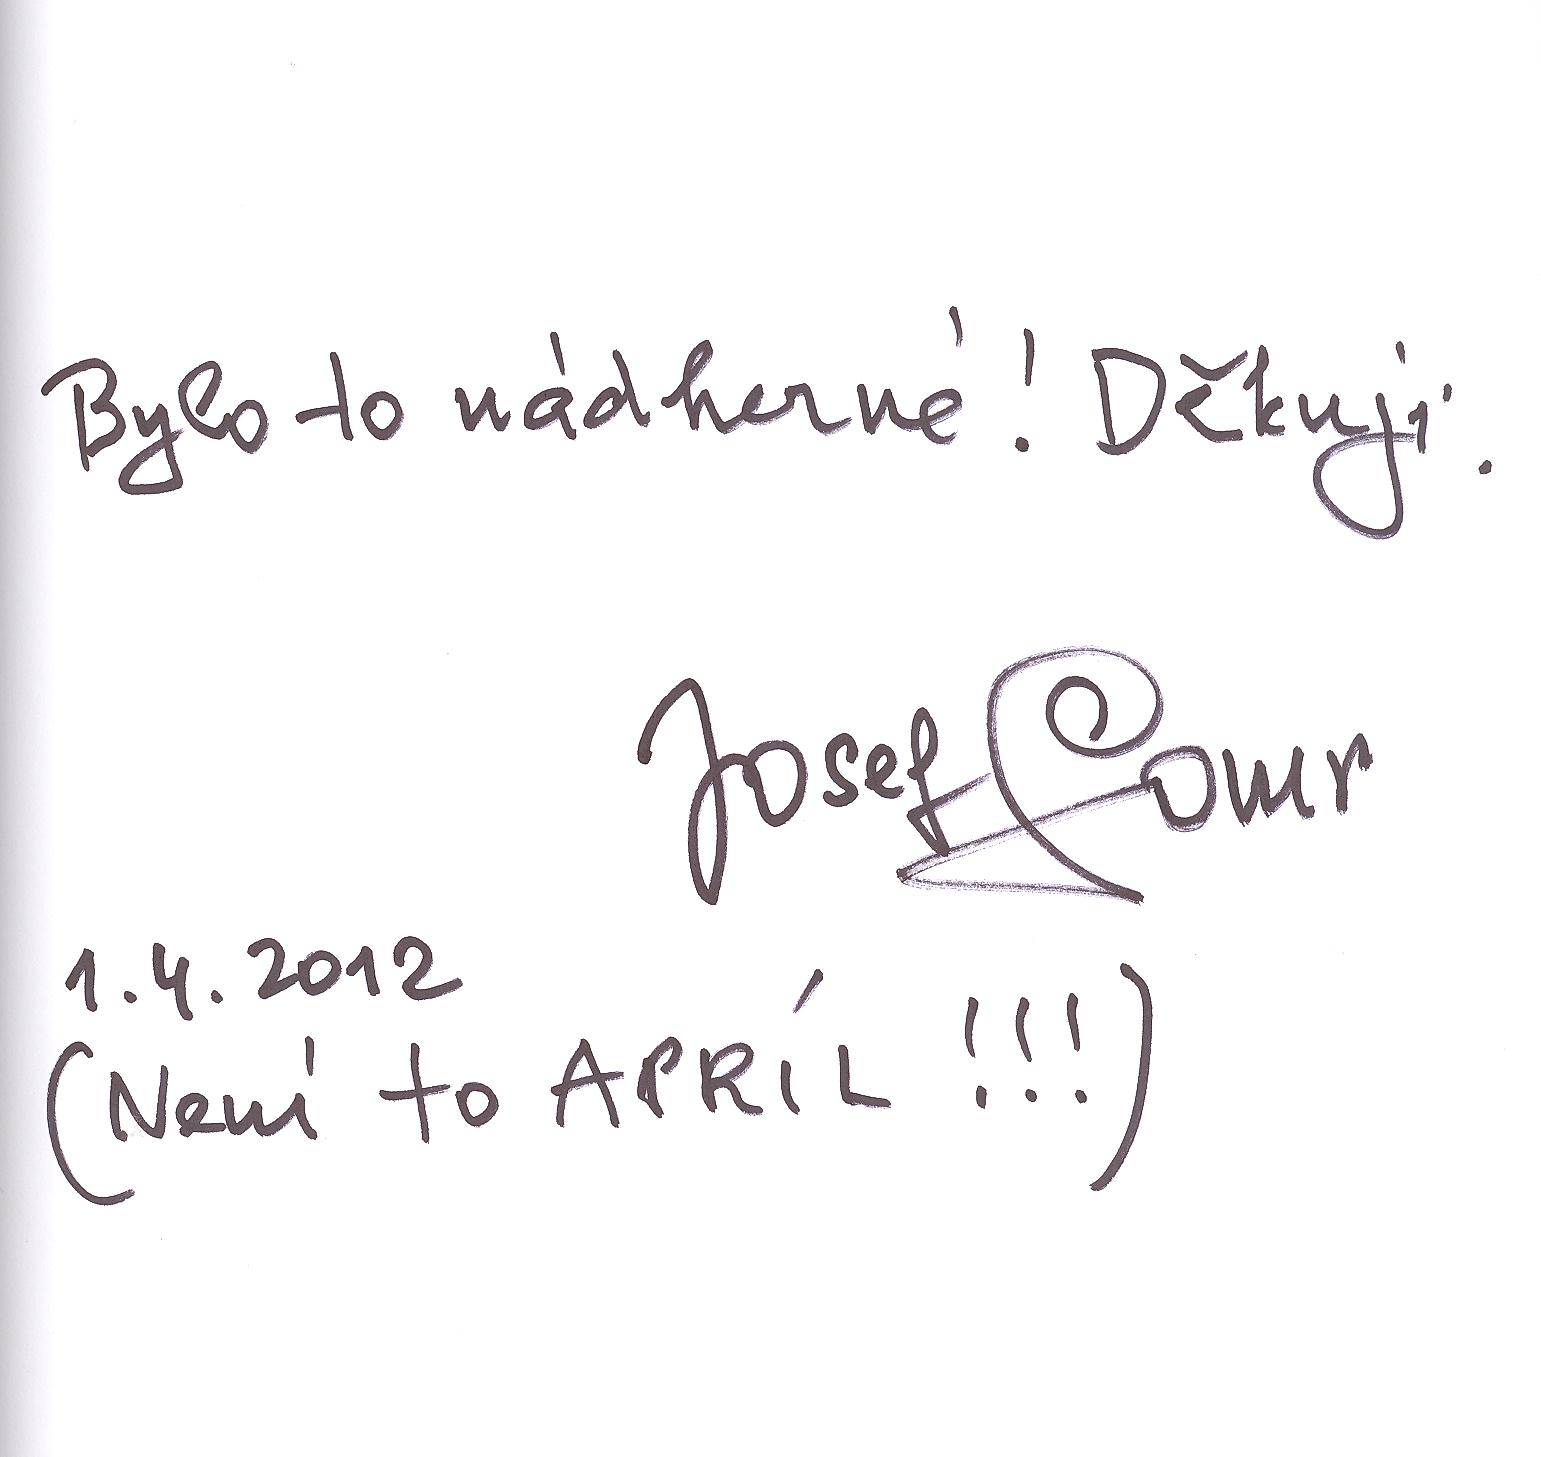 Bylo to nádherné! Děkuji.
Josef Somr
1.4.2012
(Není to APRÍL !!!)